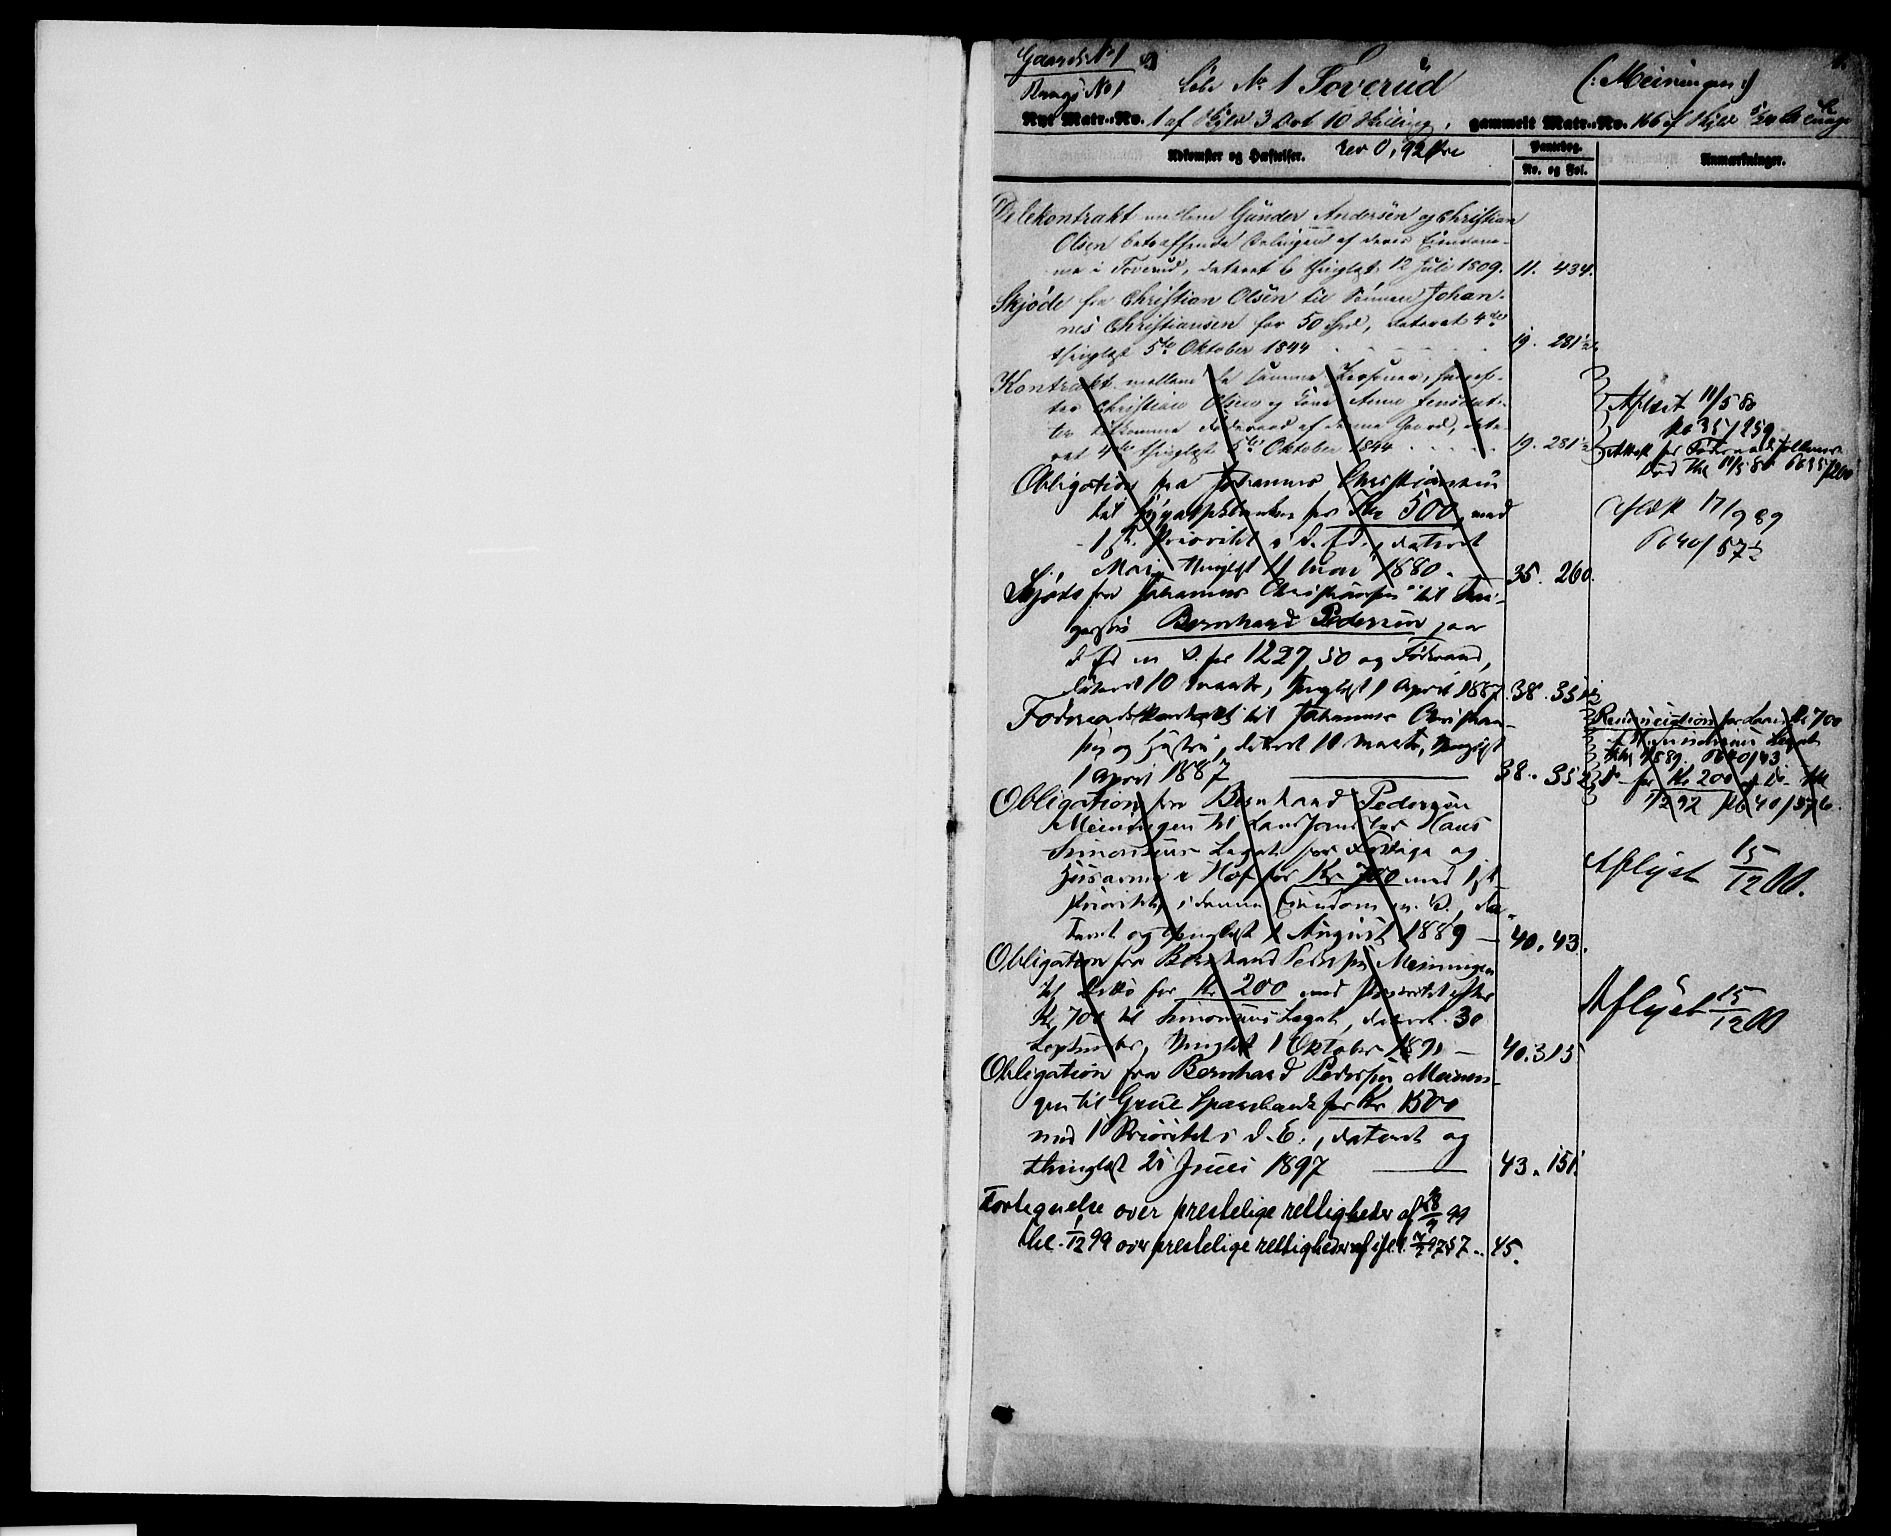 Gaards No 1
Brugs No 1
Løbe No 1 Toverud (: Meiningen :)
Nyt Matr.-No. 1 af Skyld 3 Ort 10 Skilling, gammelt Matr.-No. 166 af Skyld
Adkomster og Hæftelser. rev 0,92 Øre
Pantebog.
No. og Fol.
Anmærkninger.
Delekontrakt mellem Gunder Andersen og Christian
Olsen betræffende Delingen af deres Eiendom-
me i Toverud, dateret 6 thinglæst 12 Juli 1809. 11. 434.
Skjøde fra Christian Olsen til Sønnen Johan-
nes Christiansen for 50 Spd, dateret 4de
thinglæst 5te Oktober 1844 19. 281
Kontrakt mellem de samme Personer, hvoref-
ter Christian Olsen og Kone Anne Jensdat-
ter tilkomme Føderaad af denne Gaard, date-
ret 4de thinglæst 5te Oktober 1844 19. 281
Aflæst 11/5 80
Pb 35/259
Attest for Føderaadsfolkenes
Død thl 11/5 80 Pb 35/260
Obligation fra Johannes Christiansen
til Hypothekbanken for Kr 500, med
1ste Prioritet i d. Ed., dateret
Mai, thinglæst 11 Mai 1880. 35. 260.
17/9 89
Pb 40/57
Skjøde fra Johannes Christiansen til
Bernhard Pedersen paa
d. Ed m. V. for 1227,50 og Føderaad,
dateret 10 Marts, thinglæst 1 April 1887 38. 351
Føderaadskontrakt til Johannes Christian-
sen og Hustru, dateret 10 Marts, thinglæst
1 April 1887 38. 352
Renunciation for Laan Kr 700
af Simonsens Legat
Pb 40/43
Do for Kr 200 af Do thl
92 Pb 40/376.
Obligation fra Bernhard Pedersen
Meiningen til Hans
Simonsens Legat for Fattige og
Husarme i Hof for Kr 700 med 1ste
Prioritet i denne Eiendom m. V., da-
teret og thinglæst 1 August 1889 40. 43.
Aflyst 15/12 00.
Obligation fra Bernhard Pedersen Meiningen
til Ditto for Kr 200 med Prioritet efter
Kr 700 til Simonsens Legat, dateret 30
September, thinglæst 1 Oktober 1891 40. 315
Aflyst 15/12 00
Obligation fra Bernhard Pedersen Meinin-
gen til Grue Sparebank for Kr 1500
med 1 Prioritet i d. E., dateret og
thinglæst 21 Juni 1897 43. 151.
Fortegnelse over prestelige rettigheder af 99
thl. 1/12 99 over prestelige rettigheder 45.